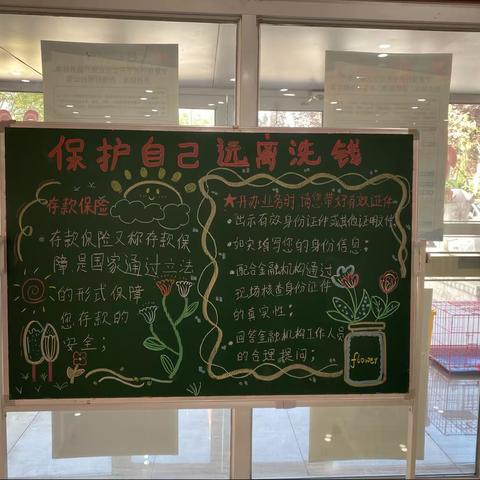 保护自己远离洗钱
存款保险
存款保险又称存款保
障,是国家通过立法
的形式保障
您存款的
安全;
★开办业务时请您带好有效证件
·出示有效身份证件或其他证明文件
·如实填写您的身份信息;
·配合金融机构通过
现场核查身份证件
的真实性;
·回答金融机构工作人员
的合理提问;
flower